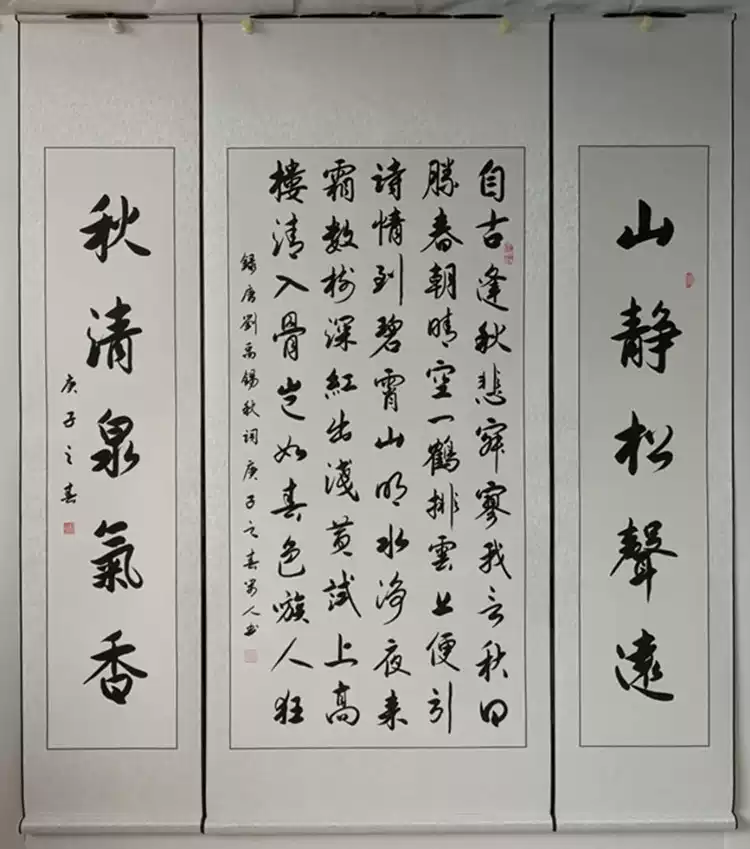 山静松聲遠
自古逢秋悲寂寥我言秋日
勝春朝晴空一鶴排雲上便引
诗情到碧霄山明水净夜来
霜数树深紅出淺黄試上高
樓清入骨岂如春色嗾人狂
録唐劉禹錫秋词庚子之春人书
秋清泉氣香
庚子之春